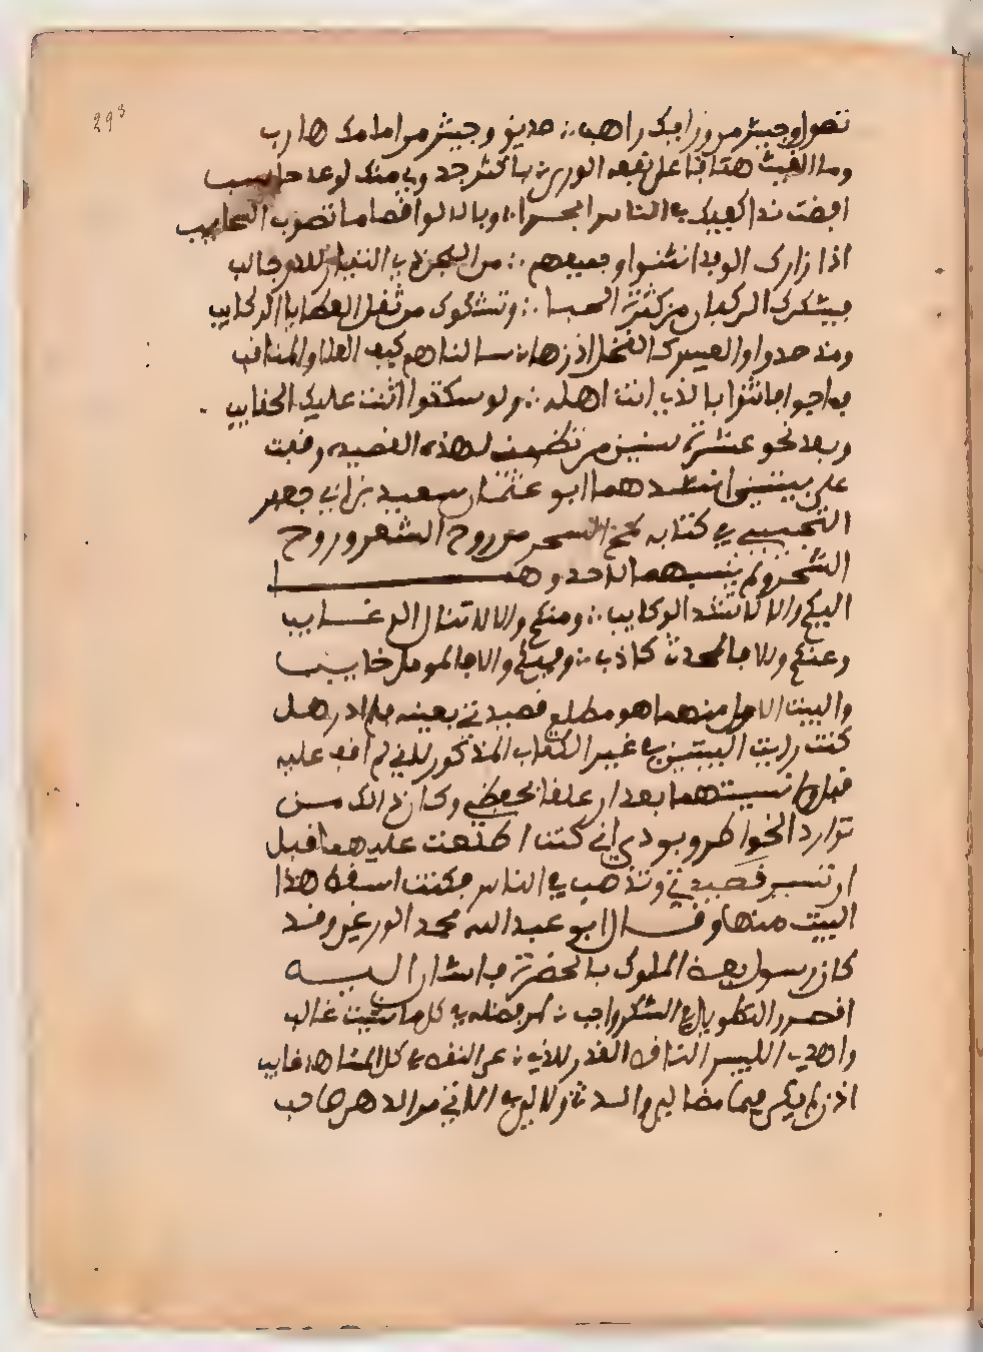 293
تصول وجيش من ورايك راهب ∴ صديق وجيش من امامك هارب
وما الغيث هتانا على بقعه الورى ∴ باكثر جدوى منك لوعد حاسب
افضت ندا كفيك في الناس ابحرا ∴ وبالدلو اقصا ما تصوب السحايب
اذا زارك الوفد انثنوا وجميعهم ∴ من
فيشكرك الركبان من كثرة الحبا ∴ وتشكوك من ثقل العطايا الركايب
ومذ حدوا والعيس اذ سالناهم كيف العلا والمناقب
فعاجوا فاثنوا بالذي انت اهله ∴ ولو سكتوا اثنت عليك الحقايب
وبعد نحو عشرة سنين من نظمت لهذه القصيده وقفت
على بيتين انشدهما ابو عثمان سعيد بن ابي جعفر
التجيبي في كتابه لمح السحر من روح الشعر وروح
الشحر ولم ينسبهما لاحد وهما
اليكم والا لا تشد الركايب ∴ ومنكم والا لا تنال الرغايب
وعنكم والا فالمحدث كاذب ∴ وفيكم والا فالمومل خايب
والبيت الاول منهما هو مطلع قصيدتي بعينه فلم ادر هل
كنت رايت البيتين في غير الكتاب المذكور للاني لم اقف عليه
قبل او نسيتهما بعد ان علقا بحفظي وكان ذالك من
توارد الخواطر وبودي اني كنت اطلعت عليهما قبل
ان تسير قصيدتي وتذهب في الناس فكنت اسقط هذا
البيت منها وقال ابو عبد الله محمد الورغي وقد
كان رسول بعض الملوك بالحضرة فاشار اليه
اقصر التطويل في الشكر واجب ∴ فضله في كل ما شيت غالب
واهدي اليسير التافه القدر للذي ∴ عن النقص في كل المشاهد غايب
اذن لم يكن فيما مضا لي والد ∴ ولا لي في الاتي من الدهر صاحب